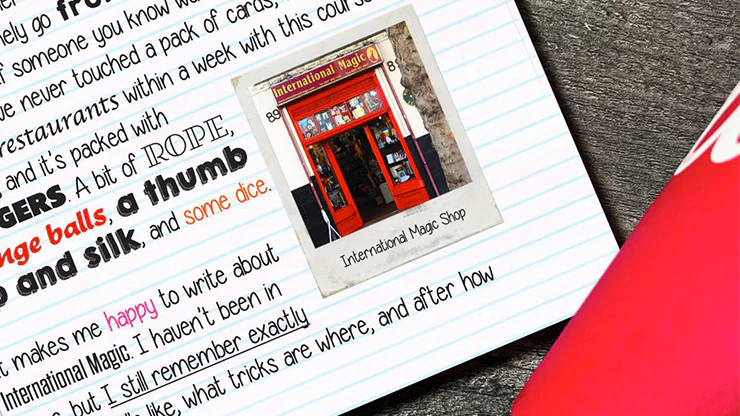 ely go fro
f someone you know wa
ve never touched a pack of cards,
restaurants within a week with this cours
and it's packed with
GERS. A bit of ROPE,
nge balls, a thumb
p and silk, and some dice.
t makes me happy to write about
International Magic. I haven't been in
but I still remember exactly
like, what tricks are where, and after how
International Magic
89
8
International Magic Shop